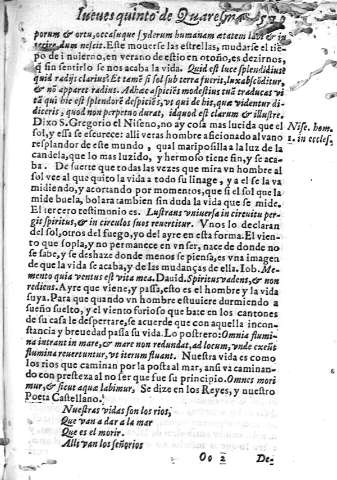 Iueues quinto de Quaresma
porum & ortu, occasuque syderum humanam ætatem labi &
terire, dum nescit. Este mouerse las estrellas, mudarse el tiẽ-
po de inuierno, en verano de estio en otoño, es dezirnos,
q̃ sin sentirlo se nos acaba la vida. Quid est luce splendidius
quid radijs clarius? Et tamẽ si sol sub terra fuerit, lux absciditur,
& nõ apparet radius. Adhæc aspiciẽs modestius cuũ traducas vi
tã qui hic est splendorẽ despiciẽs, vt qui de his, quæ videntur di-
diceris, quod non perpetuo durat, id quod est clarum & illustre.
Dixo S. Gregorio el Niseno, no ay cosa mas lucida que el
sol, y essa se escurece: alli veras hombre aficionado al vano
resplandor de este mundo, qual mariposilla a la luz de la
candela, que lo mas luzido, y hermoso tiene fin, y se aca-
ba. De fuerte que todas las vezes que mira vn hombre al
sol vee al que quito la vida a todo su linage, y a el se la va
midiendo, y acortando por momentos, que si el sol que la
mide buela, bolara tambien sin duda la vida que se mide.
El tercero testimonio es. Lustrans vniuersa in circuitu per
git spiritus, & in circulos suos reuertitur. Vnos lo declaran
del sol, otros del fuego, yo del ayre en esta forma. El vien-
to que sopla, y no permanece en vn ser, nace de donde no
se sabe, y se deshaze donde menos se piensa, es vna imagen
de que la vida se acaba, y de las mudanças de ella. Iob. Me-
mento quia ventus est vita mea. Dauid. Spiritus vadens, & non
rediens. Ayre que viene, y passa, esto es el hombre y la vida
suya. Para que quando vn hombre estuuiere durmiendo a
sueño suelto, y el viento furioso que bate en los cantones
de su casa le despertare, se acuerde que con aquella incon-
stancia y breuedad passa su vida. Lo postrero: Omnia flumi-
na intrant in mare, & mare non redundat, ad locum, vnde exeũt
flumina reuertuntur, vt iterum fluant. Nuestra vida es como
los rios que caminan por la posta al mar, ansi va caminan-
do con presteza al no ser que fue su principio. Omnes mori
mur, & sicut aqua labimur, Se dize en los Reyes, y nuestro
Poeta Castellano.
Nuestras vidas son los rios,
Que van a dar a la mar
Que es el morir.
Alli van los señorios
Oo 2 De-
Nise. hom.
1. in eccles.